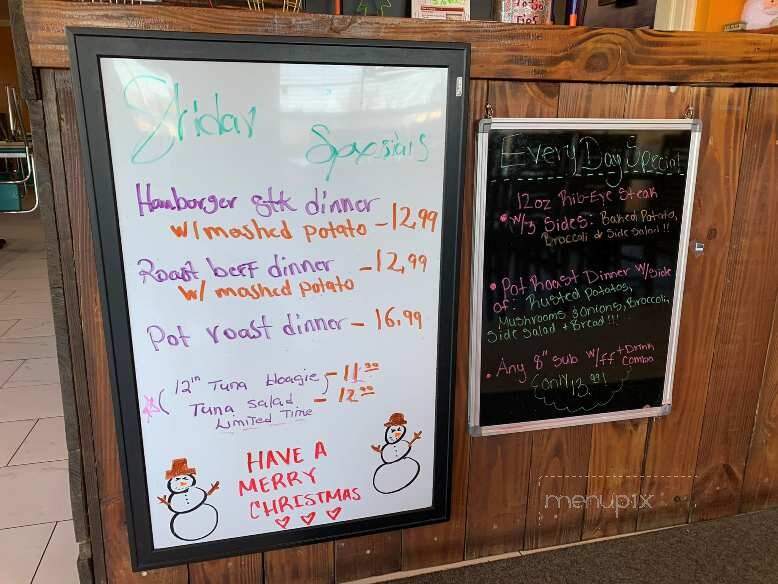 To Go
Friday
Specials
Hamburger stk dinner
w/ mashed potato - 12.99
Roast beef dinner - 12,99
w/ mashed potato
Pot roast dinner - 16.99
12" Tuna Hoagie - 11.99
Tuna salad - 12.99
Limited Time
HAVE A
MERRY
CHRISTMAS
Every Day Special
12oz Rib-Eye Steak
• w/3 Sides: Baked Potato,
Broccoli & Side Salad!!
• Pot Roast Dinner w/side
of: Rusted Potatos,
Mushrooms & Onions, Broccoli,
Side Salad + Bread!!!
• Any 8" Sub w/ff + Drink
Combo
Only 13.99!
menupix